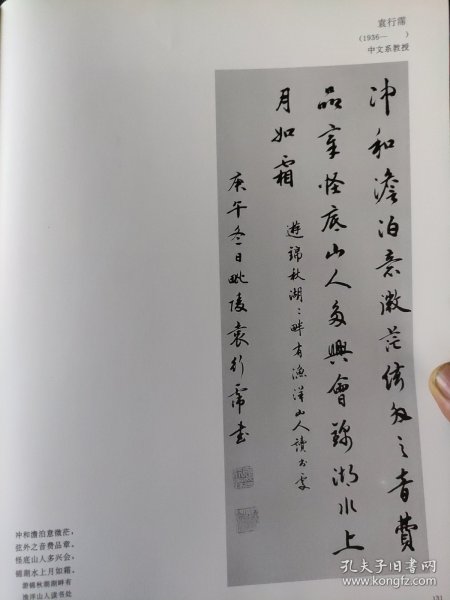 袁行霈
(1936— )
中文系教授
冲和澹泊意微茫絃外之音費
品章怪底山人多興會錦湖水上
月如霜
遊錦秋湖：畔有漁洋山人讀書處
庚午冬日毗陵袁行霈書
冲和澹泊意微茫,
弦外之音费品章,
怪底山人多兴会,
锦湖水上月如霜。
游锦秋湖湖畔有
渔洋山人读书处
131
孔夫子旧书网